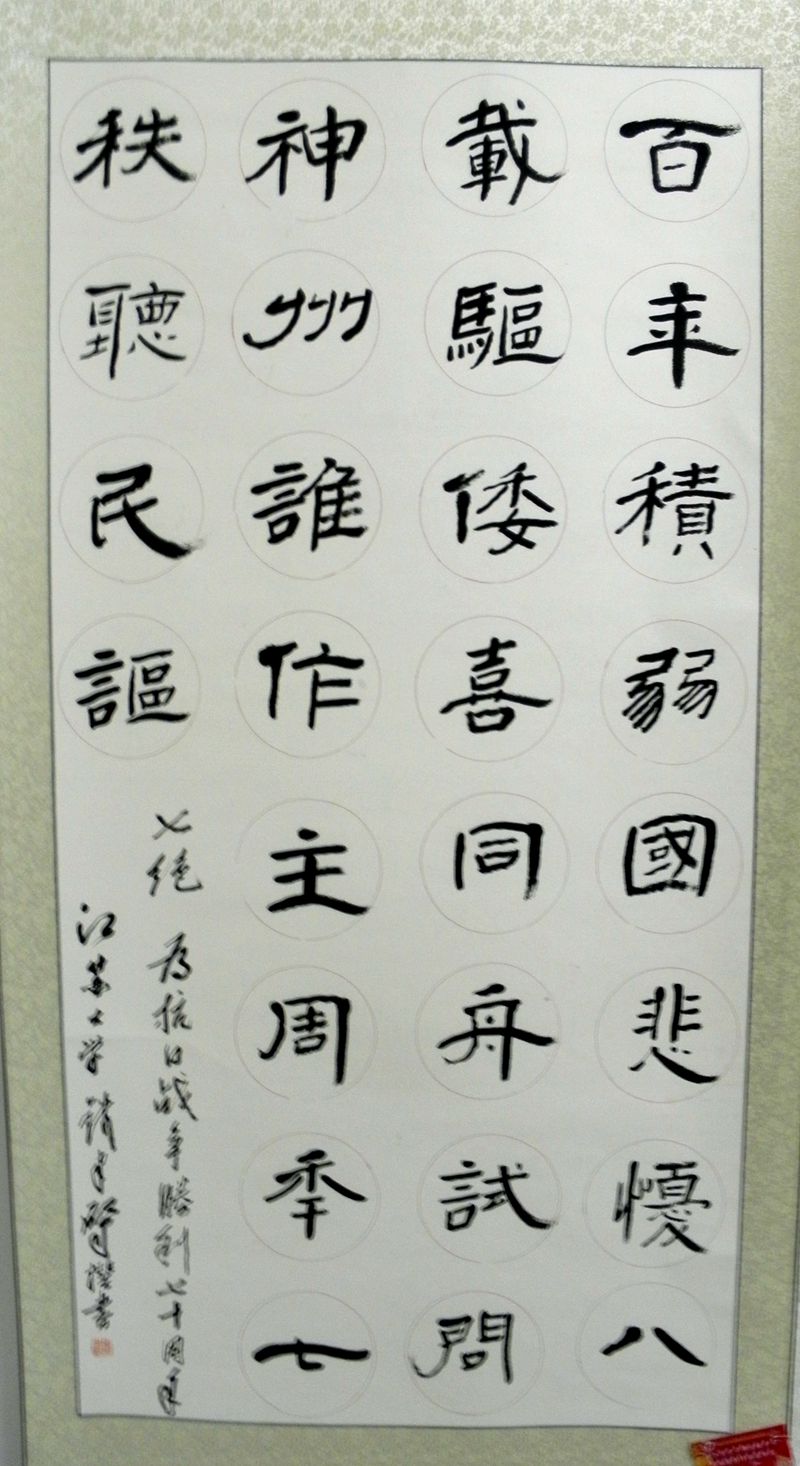 百年積弱國悲懮八
載驅倭喜同舟試問
神州誰作主周年七
秩聽民謳
七绝 为抗日战争勝利七十周年
江苏大学 書